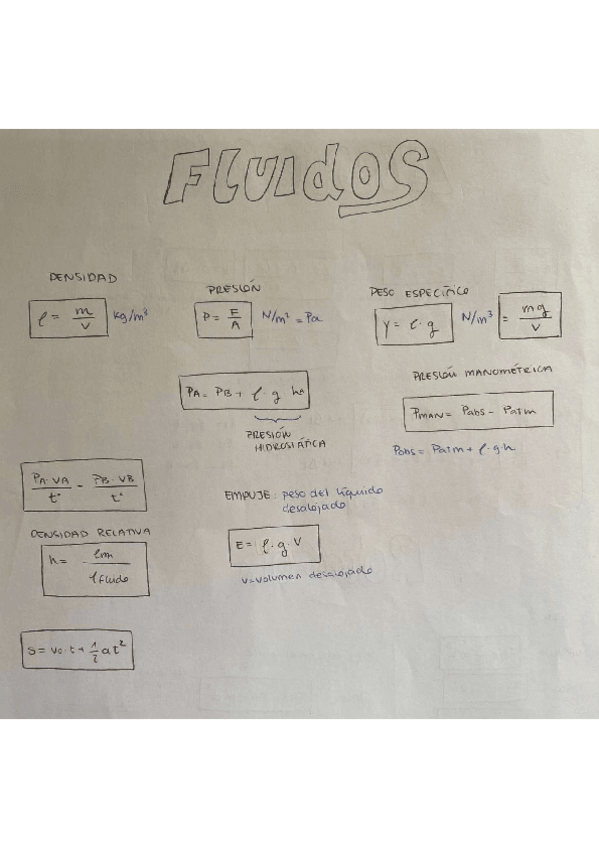 FLUIDOS
DENSIDAD
ρ = m/V kg/m³
PRESIÓN
P = F/A N/m² = Pa
PESO ESPECÍFICO
γ = ρ · g N/m³ = mg/V
PA = PB + ρ · g · h
PRESIÓN
HIDROSTÁTICA
PRESIÓN MANOMÉTRICA
PMAN = Pabs - Patm
Pabs = Patm + ρ · g · h
PA · VA / t = PB · VB / t
EMPUJE: peso del líquido
desalojado
E = ρ · g · V
V = volumen desalojado
DENSIDAD RELATIVA
h = ρm / ρfluido
S = v0 · t + 1/2 at²